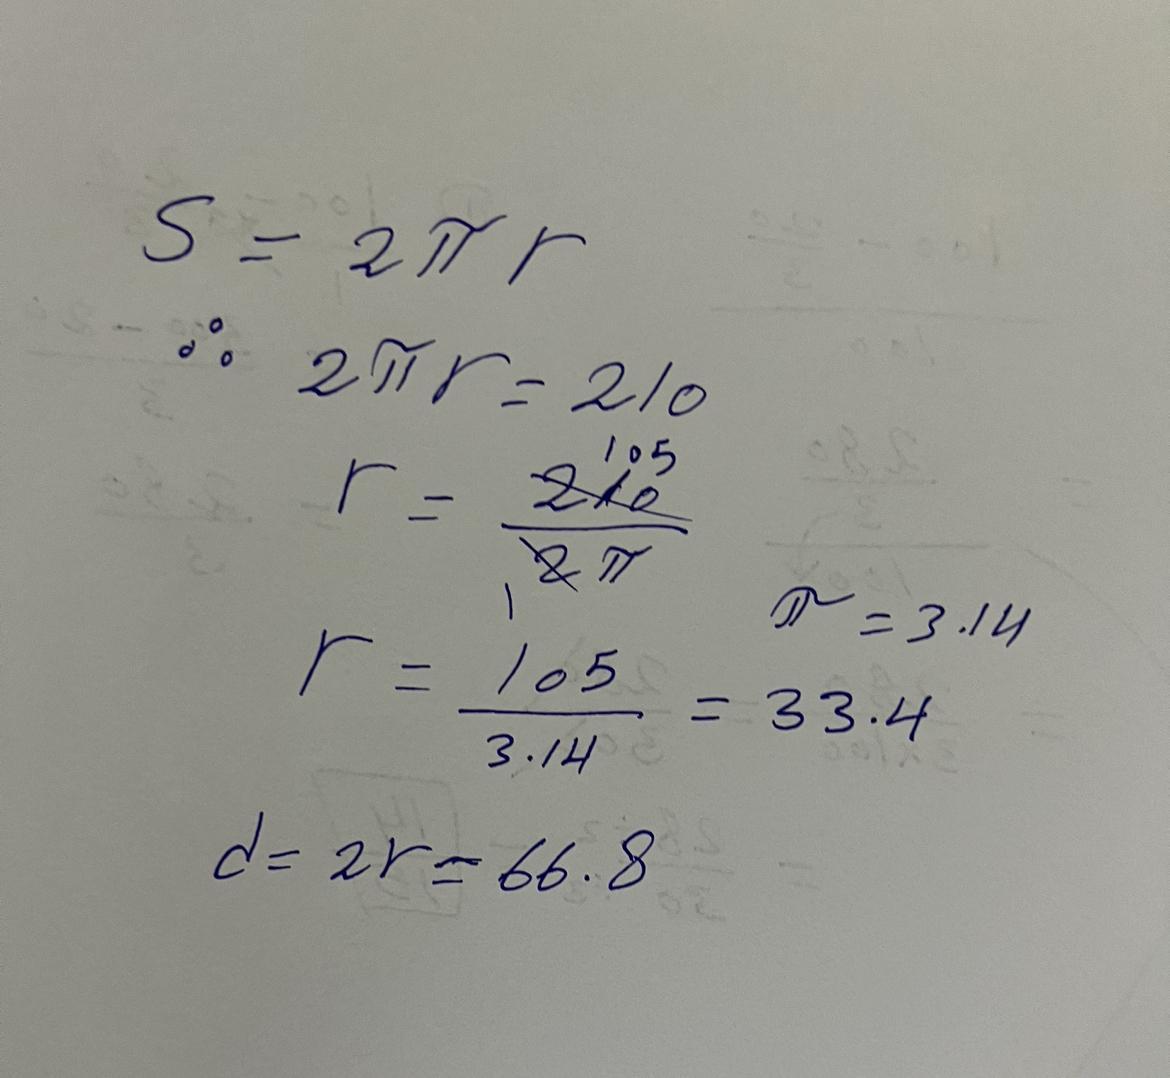 S = 2πr
∴ 2πr = 210
105
r = 210 / 2π
1
π = 3.14
r = 105 / 3.14 = 33.4
d = 2r = 66.8